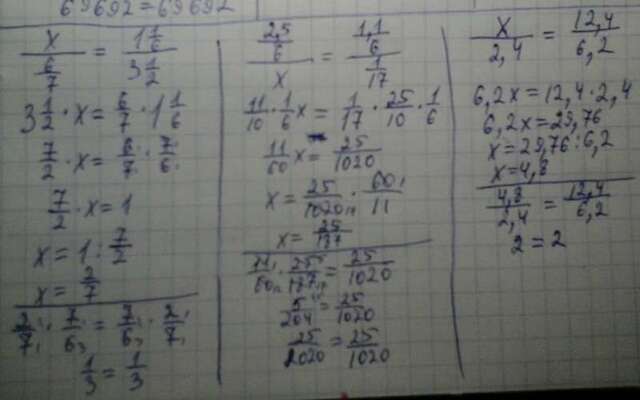 69692 = 69692
x / (6/7) = 1 1/6 / 3 1/2
3 1/2 · x = 6/7 · 1 1/6
7/2 · x = 6/7 · 7/6
7/2 · x = 1
x = 1 : 7/2
x = 2/7
2/7 · 7/6 = 7/6 · 2/7
1/3 = 1/3
(2,5/6) / x = (1,1/6) / (1/17)
11/10 · 1/6 x = 1/17 · 25/10 · 1/6
11/60 x = 25/1020
x = 25/1020 · 60/11
x = 25/187
11/60 · 25/187 = 25/1020
5/204 = 25/1020
25/1020 = 25/1020
x / 2,4 = 12,4 / 6,2
6,2x = 12,4 · 2,4
6,2x = 29,76
x = 29,76 : 6,2
x = 4,8
4,8 / 2,4 = 12,4 / 6,2
2 = 2